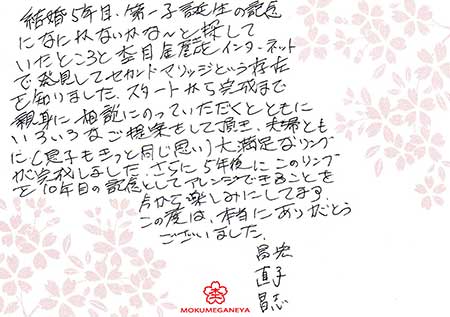 結婚5年目、第一子誕生の記念
になにかないかな〜と探して
いたところと杢目金屋をインターネット
で発見してセカンドマリッジという存在
を知りました。スタートから完成まで
親身に相談にのっていただくとともに
いろいろなご提案をして頂き、夫婦とも
に(息子もきっと同じ思い)大満足なリング
が完成しました。さらに5年後にこのリング
を10年目の記念としてアレンジできることを
今から楽しみにしてます。
この度は、本当にありがとう
ございました。
昌宏
直子
昌志
MOKUMEGANEYA